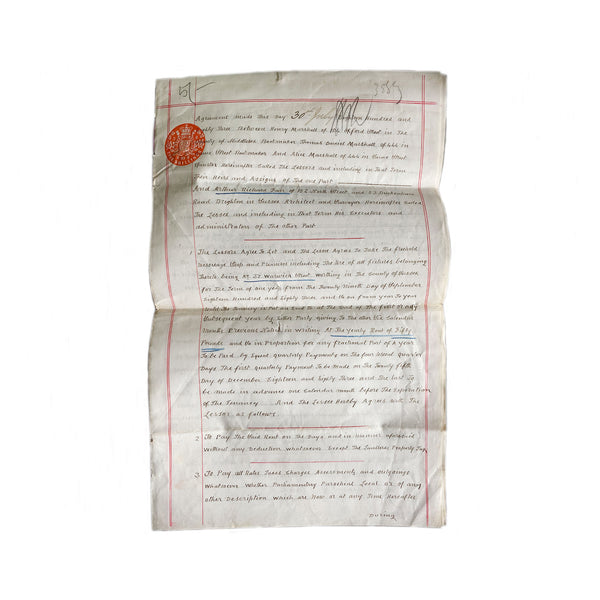 5/-
3559
Agreement Made This Day 30th July hundred and
Eighty Three Between Henry Marshall of Oxford Street in The
County of Middlesex Bootmaker Thomas Daniel Marshall of
Street Bootmaker And Alice Marshall of
Spinster Hereinafter Called The Lessors and including in That Term
Their Heirs and Assigns of The one Part
And Arthur Richard Fair of 102 North Street and
Road Brighton in Sussex Architect and Surveyor Hereinafter Called
The Lessee and including in That Term His Executors and
administrators of The other Part
1 The Lessors Agree To Let and The Lessee Agrees To Take The freehold
Messuage Shop and Premises including The Use of all fixtures belonging
Thereto being No 57 Warwick Street Worthing in The County of Sussex
for The Term of one year from The Twenty Ninth Day of September
Eighteen Hundred and Eighty Three and so on from year To year
until The Tenancy is Put an End To at The End of The first or any
Subsequent year by Either Party Giving To The other Six Calendar
Months Previous Notice in Writing At The yearly Rent of Fifty
Pounds and so in Proportion for any fractional Part of A year
To be Paid by Equal quarterly Payments on The four usual quarter
Days The first quarterly Payment To be Made on The Twenty fifth
Day of December Eighteen and Eighty Three and The Last To
be Made in advance one Calendar month before The Expiration
of The Tenancy And The Lessee Hereby Agrees with The
Lessors as follows
2 To Pay The Said Rent on The Days and in Manner aforesaid
Without any Deduction whatsoever Except The Landlords Property Tax
3 To Pay All Rates Taxes Charges Assessments and outgoings
Whatsoever Whether Parliamentary Parochial Local or of any
other Description which are Now or at any Time Hereafter
During